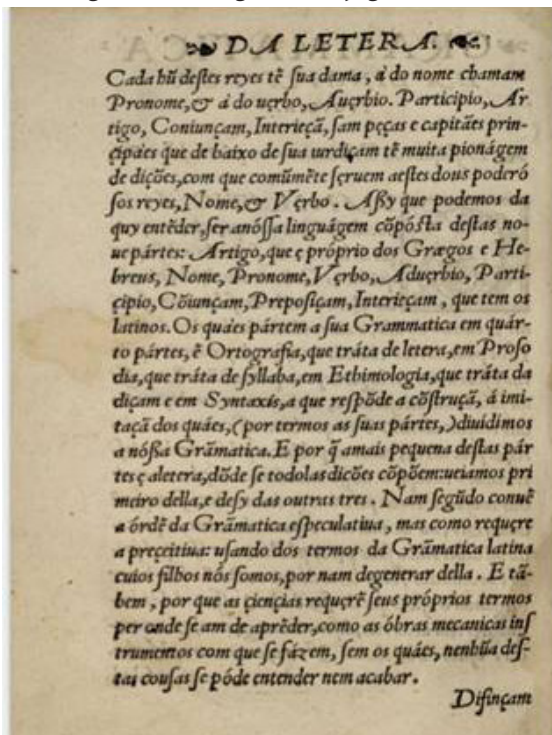 DA LETERA.
Cada hũ destes reyes tẽ sua dama, a do nome chamam
Pronome, & a do uęrbo, Auęrbio. Participio, Ar
tigo, Coniunçam, Interieçã, sam pęças e capitães prin-
çipáes que de baixo de sua iurdiçam tẽ muita pionágem
de dições, com que comũmẽte sęruem aestes dous poderó
sos reyes, Nome, & Vęrbo. Assy que podemos da
quy entẽder, ser anóssa linguágem cõpósta destas no-
ue pártes: Artigo, que ę próprio dos Græcos e He-
breus, Nome, Pronome, Vęrbo, Aduęrbio, Parti-
çipio, Cõiunçam, Preposiçam, Interieçam, que tem os
latinos. Os quáes pártem a sua Grammatica em quár-
to pártes, ẽ Ortografia, que tráta de letera, em Proso
dia, que tráta de syllaba, em Ethimologia, que tráta da
diçam e em Syntaxis, a que respõde a cõstruçã, á imi-
taçã dos quáes, (por termos as suas pártes,) diuidimos
a nóssa Grãmatica. E por q̃ amais pequena destas pár
tes ę aletera, dõde se todolas dições cõpõem: ueiamos pri
meiro della, e desy das outras tres. Nam segũdo conuẽ
a órdẽ da Grãmatica especulatiua, mas como requęre
a preçeitiua: usando dos termos da Grãmatica latina
cuios filhos nós somos, por nam degenerar della. E tã-
bem, por que as çiençias requęrẽ seus próprios termos
per onde se am de aprẽder, como as óbras mecanicas ins
trumentos com que se fázem, sem os quáes, nenhũa des-
tas cousas se póde entender nem acabar.
Difinçam